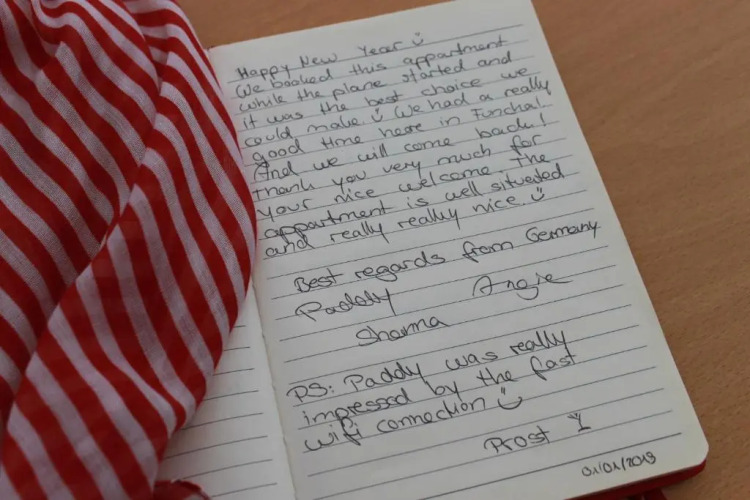 Happy New Year ☺
We booked this appartment
while the plane started and
it was the best choice we
could make. ☺ We had a really
good time here in Funchal.
And we will come back!
Thank you very much for
your nice welcome. The
appartment is well situated
and really really nice. ☺
Best regards from Germany
Paddy Angie
Sharma
PS: Paddy was really
impressed by the fast
wifi connection ☺
Prost
01/01/2019